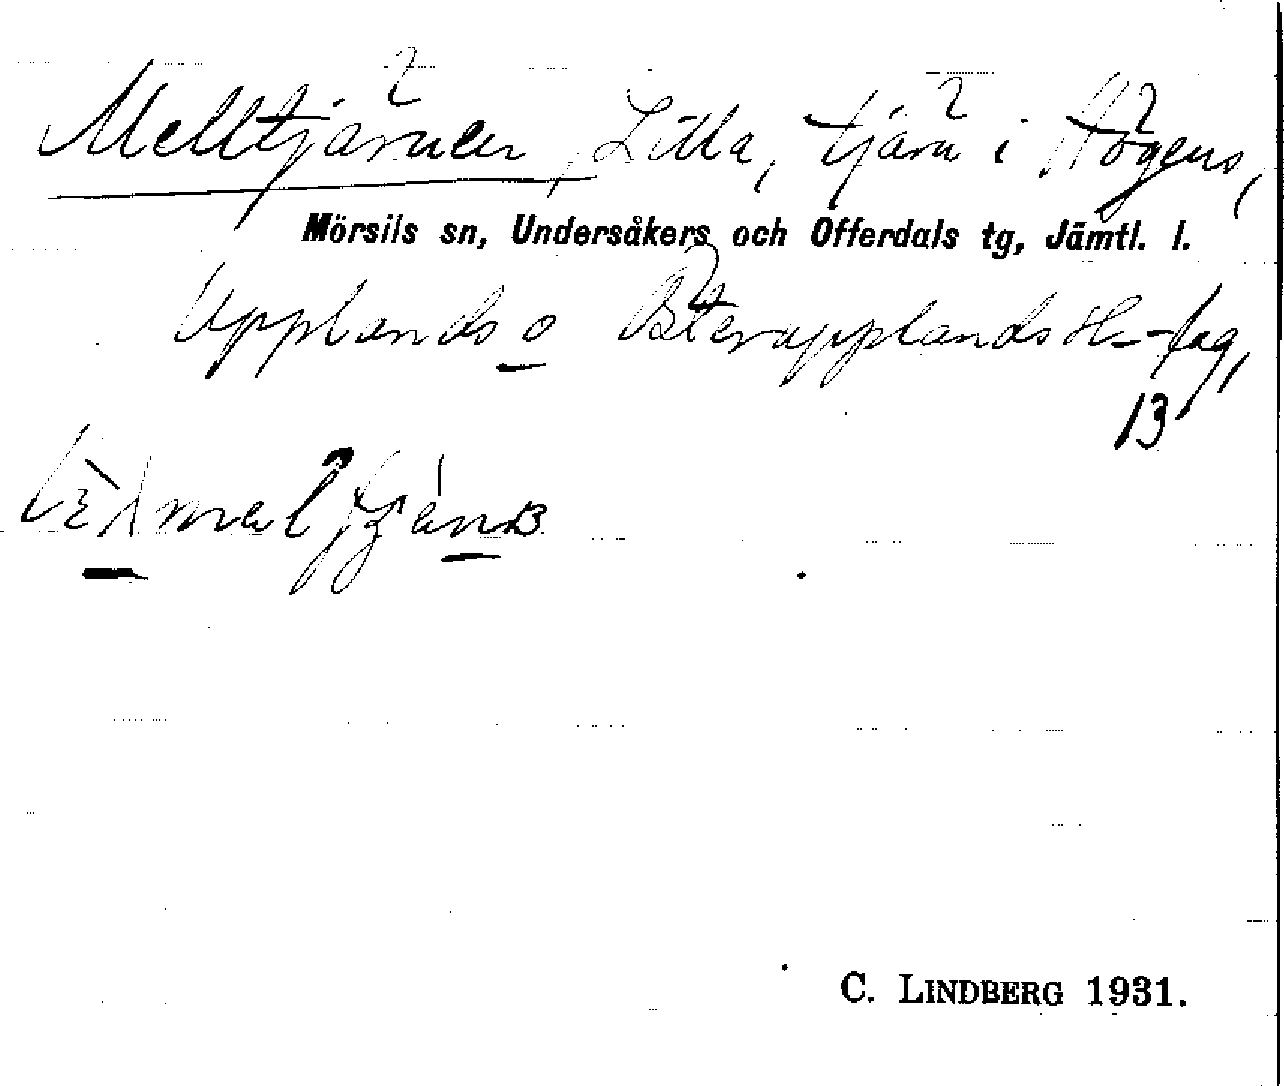 Melltjärnen, Lilla, tjärn i Högens,
Mörsils sn, Undersåkers och Offerdals tg, Jämtl. l.
Upplands o Österupplands sk-lag,
13
C. LINDBERG 1931.